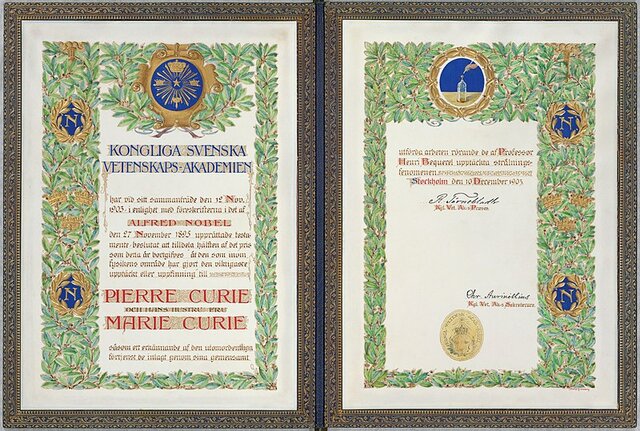 KONGLIGA SVENSKA
VETENSKAPS-AKADEMIEN
har vid sitt sammanträde den 12 Nov.
1903, i enlighet med föreskrifterna i det af
ALFRED NOBEL
den 27 November 1895 upprättade testa-
mente beslutat att tilldela hälften af det pris
som detta år bortgifves åt den som inom
fysikens område har gjort den viktigaste
upptäckt eller uppfinning till
PIERRE CURIE
OCH HANS HUSTRU FRU
MARIE CURIE
såsom ett erkännande af den utomordentliga
förtjenst de inlagt genom sina gemensamt
N
N
utförda arbeten rörande de af Professor
Henri Bequerel upptäckta strålnings-
fenomenen.
Stockholm den 10 December 1903
Kgl. Vet. Ak:s Præses
Kgl. Vet. Ak:s Sekreterare
N
N